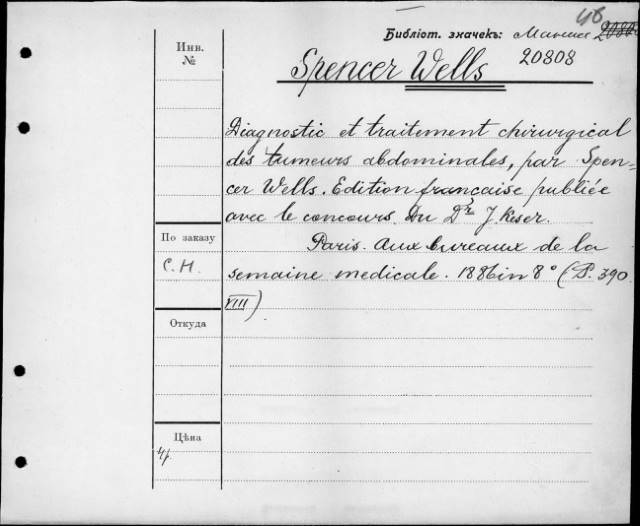 46
Библіот. значекъ:
20808
Инв.
№
Spencer Wells
Diagnostic et traitement chirurgical
des tumeurs abdominales, par Spen-
cer Wells. Edition francaise publiée
avec le concours du Dr J. Keser.
По заказу
Paris. Aux bureaux de la
С.Н.
semaine medicale. 1886 in 8° (P. 390
VIII)
Откуда
Цѣна